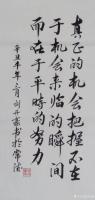 真正的机会把握不在
于机会来临的瞬间
而在于平时的努力
辛丑年三月刘开豪书于常德